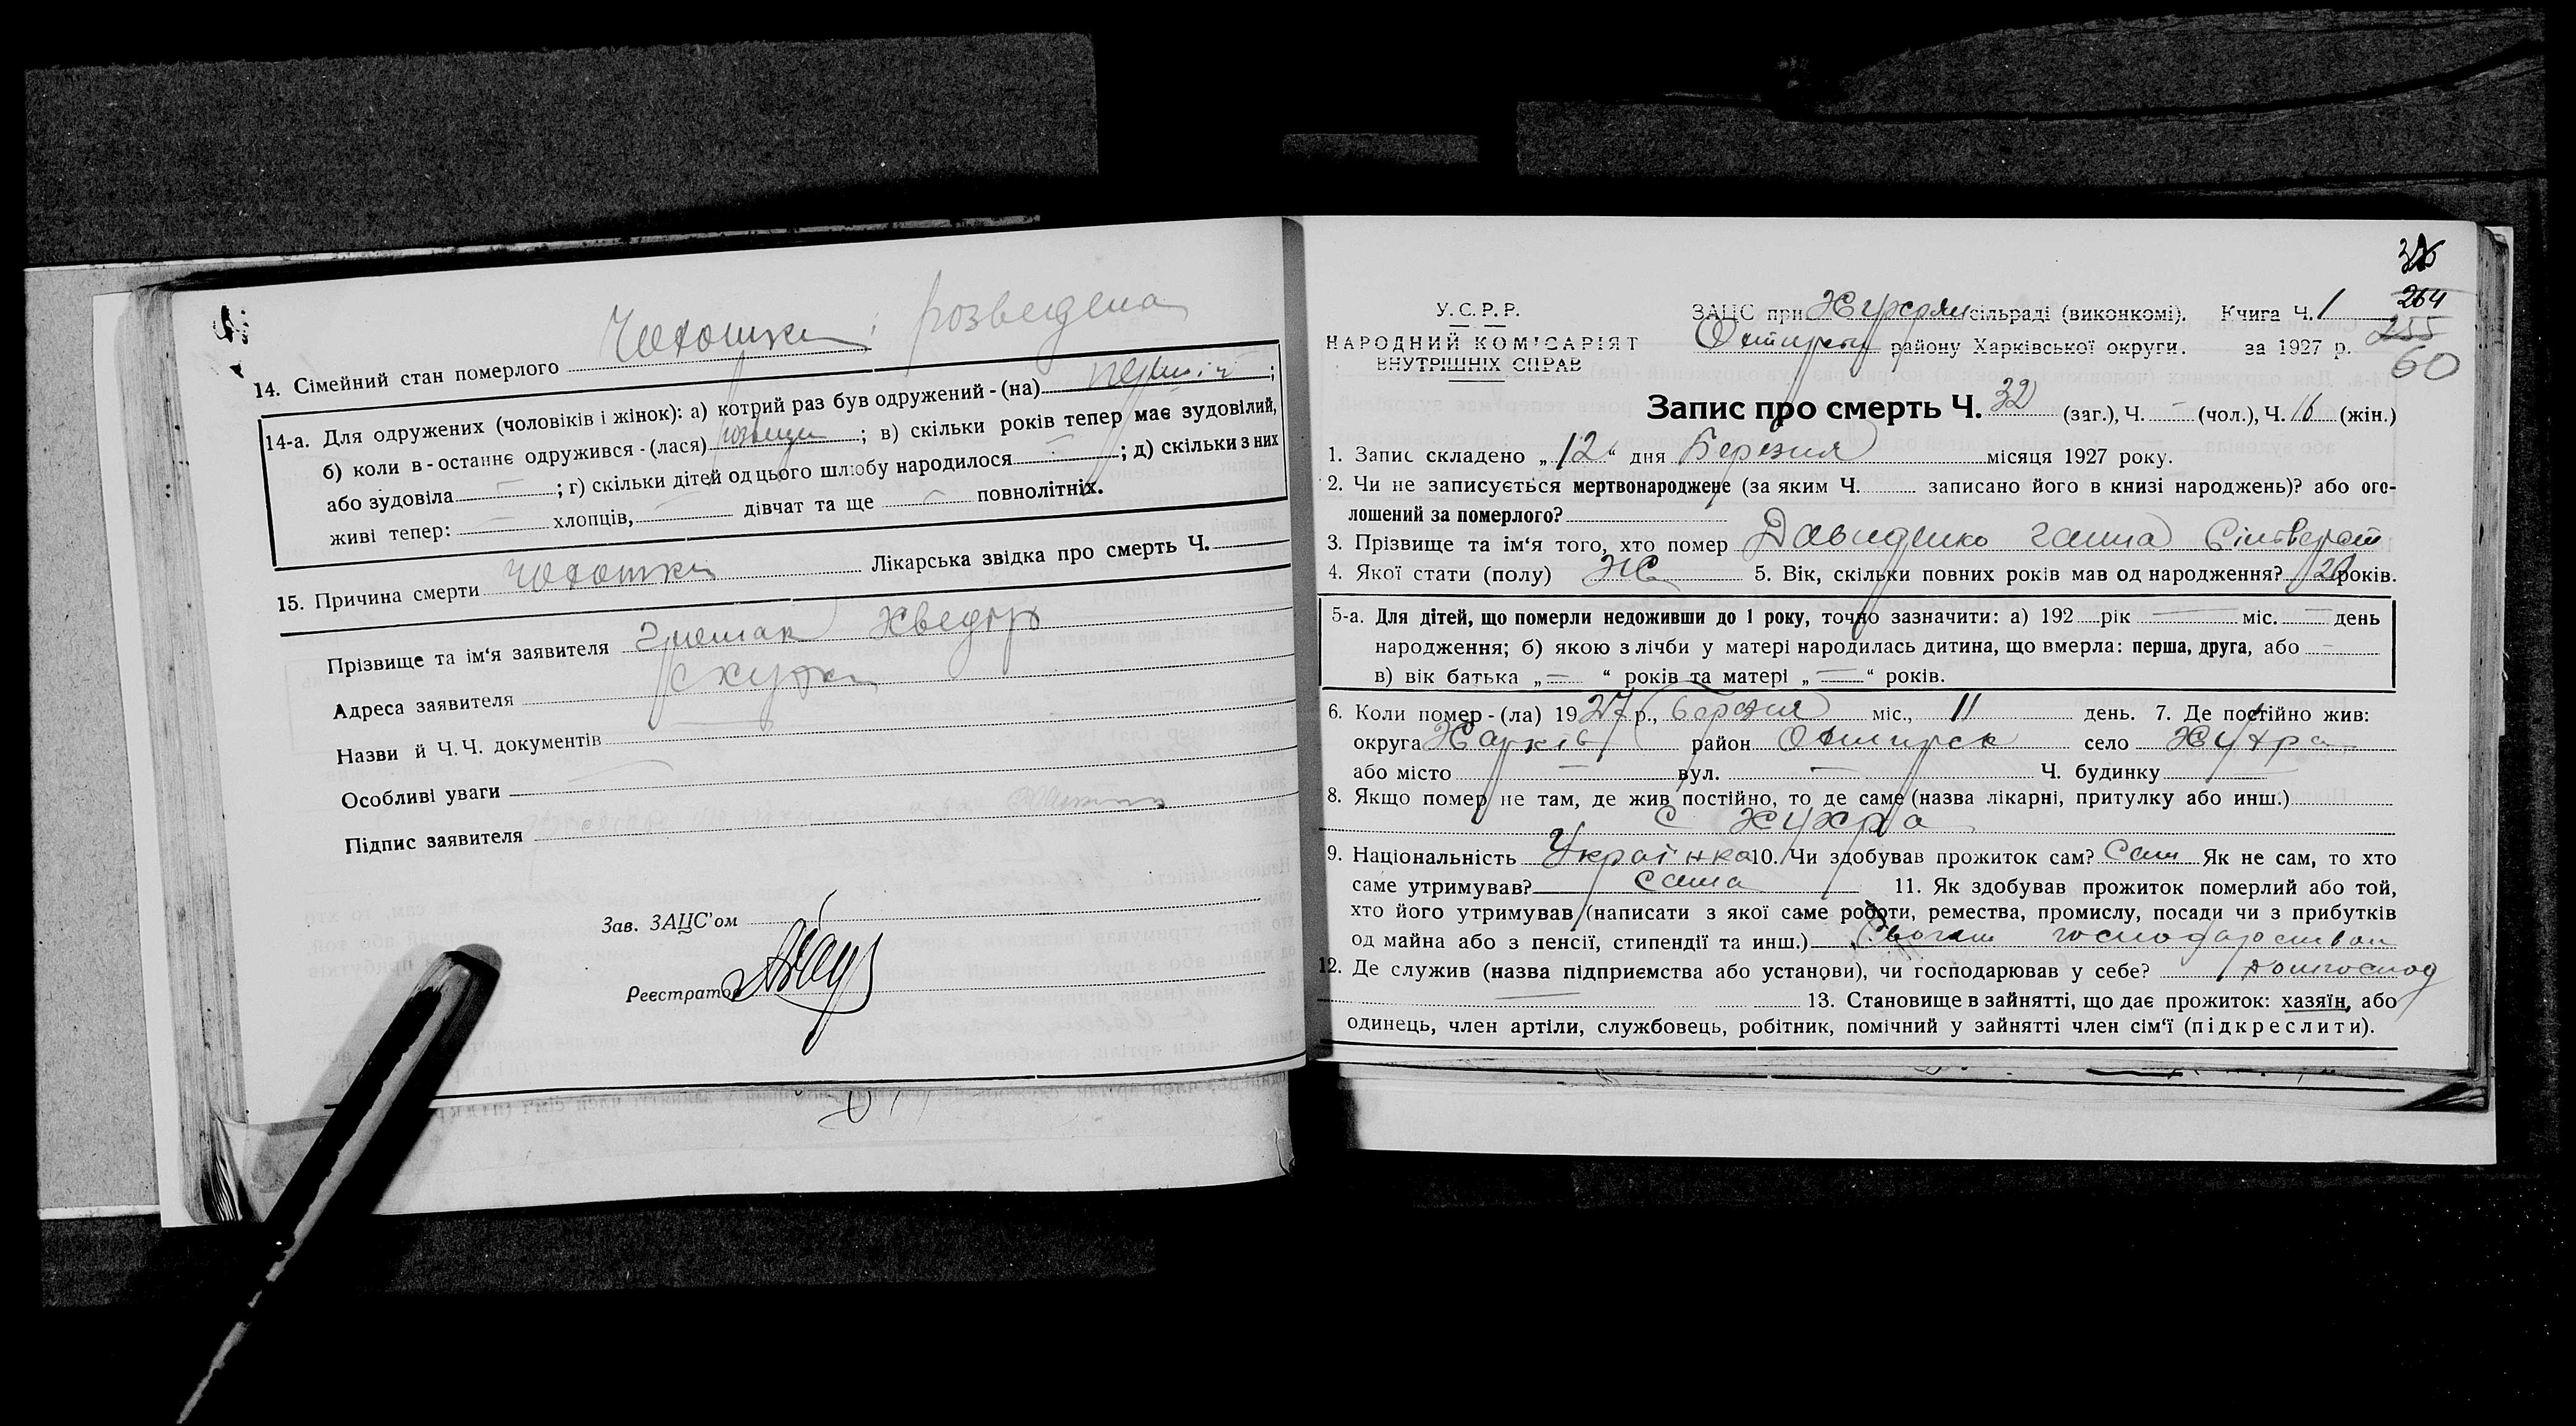 14. Сімейний стан померлого Чахотки; розведена
14-а. Для одружених (чоловіків і жінок): а) котрий раз був одружений - (на) перший;
б) коли в - останнє одружився - (лася) ; в) скільки років тепер має зудовілий,
або зудовіла — ; г) скільки дітей од цього шлюбу народилося — ; д) скільки з них
живі тепер: — хлопців, — дівчат та ще — повнолітніх.
15. Причина смерти Чахотки Лікарська звідка про смерть Ч.
Прізвище та ім'я заявителя Хведір
Адреса заявителя с хухра
Назви й Ч. Ч. документів
Особливі уваги
Підпис заявителя
Зав. ЗАЦС'ом
Реєстратор
264
255
60
У. С. Р. Р.
НАРОДНИЙ КОМІСАРІЯТ
ВНУТРІШНІХ СПРАВ
ЗАЦС при сільраді (виконкомі). Книга Ч. 1
району Харківської округи. за 1927 р.
Запис про смерть Ч. 32 (заг.), Ч. — (чол.), Ч. 16 (жін.)
1. Запис складено „ 12 “ дня Березня місяця 1927 року.
2. Чи не записується мертвонароджене (за яким Ч. записано його в книзі народжень)? або ого-
лошений за померлого?
3. Прізвище та ім'я того, хто помер Давиденко Ганна
4. Якої стати (полу) Ж 5. Вік, скільки повних років мав од народження? років.
5-а. Для дітей, що померли недоживши до 1 року, точно зазначити: а) 192 рік — міс. — день
народження; б) якою з лічби у матері народилась дитина, що вмерла: перша, друга, або —
в) вік батька „ — “ років та матері „ — “ років.
6. Коли помер - (ла) 1927 р., березня міс., 11 день. 7. Де постійно жив:
округа Харків район Охтирськ село Хухра
або місто — вул. — Ч. будинку —
8. Якщо помер не там, де жив постійно, то де саме (назва лікарні, притулку або инш.)
С Хухра
9. Національність Українка 10. Чи здобував прожиток сам? Сам Як не сам, то хто
саме утримував? сама 11. Як здобував прожиток померлий або той,
хто його утримував (написати з якої саме роботи, ремества, промислу, посади чи з прибутків
од майна або з пенсії, стипендії та инш.) своїм господарством
12. Де служив (назва підприємства або установи), чи господарював у себе? домгоспод
— 13. Становище в зайнятті, що дає прожиток: хазяїн, або
одинець, член артіли, службовець, робітник, помічний у зайнятті член сім'ї (підкреслити).